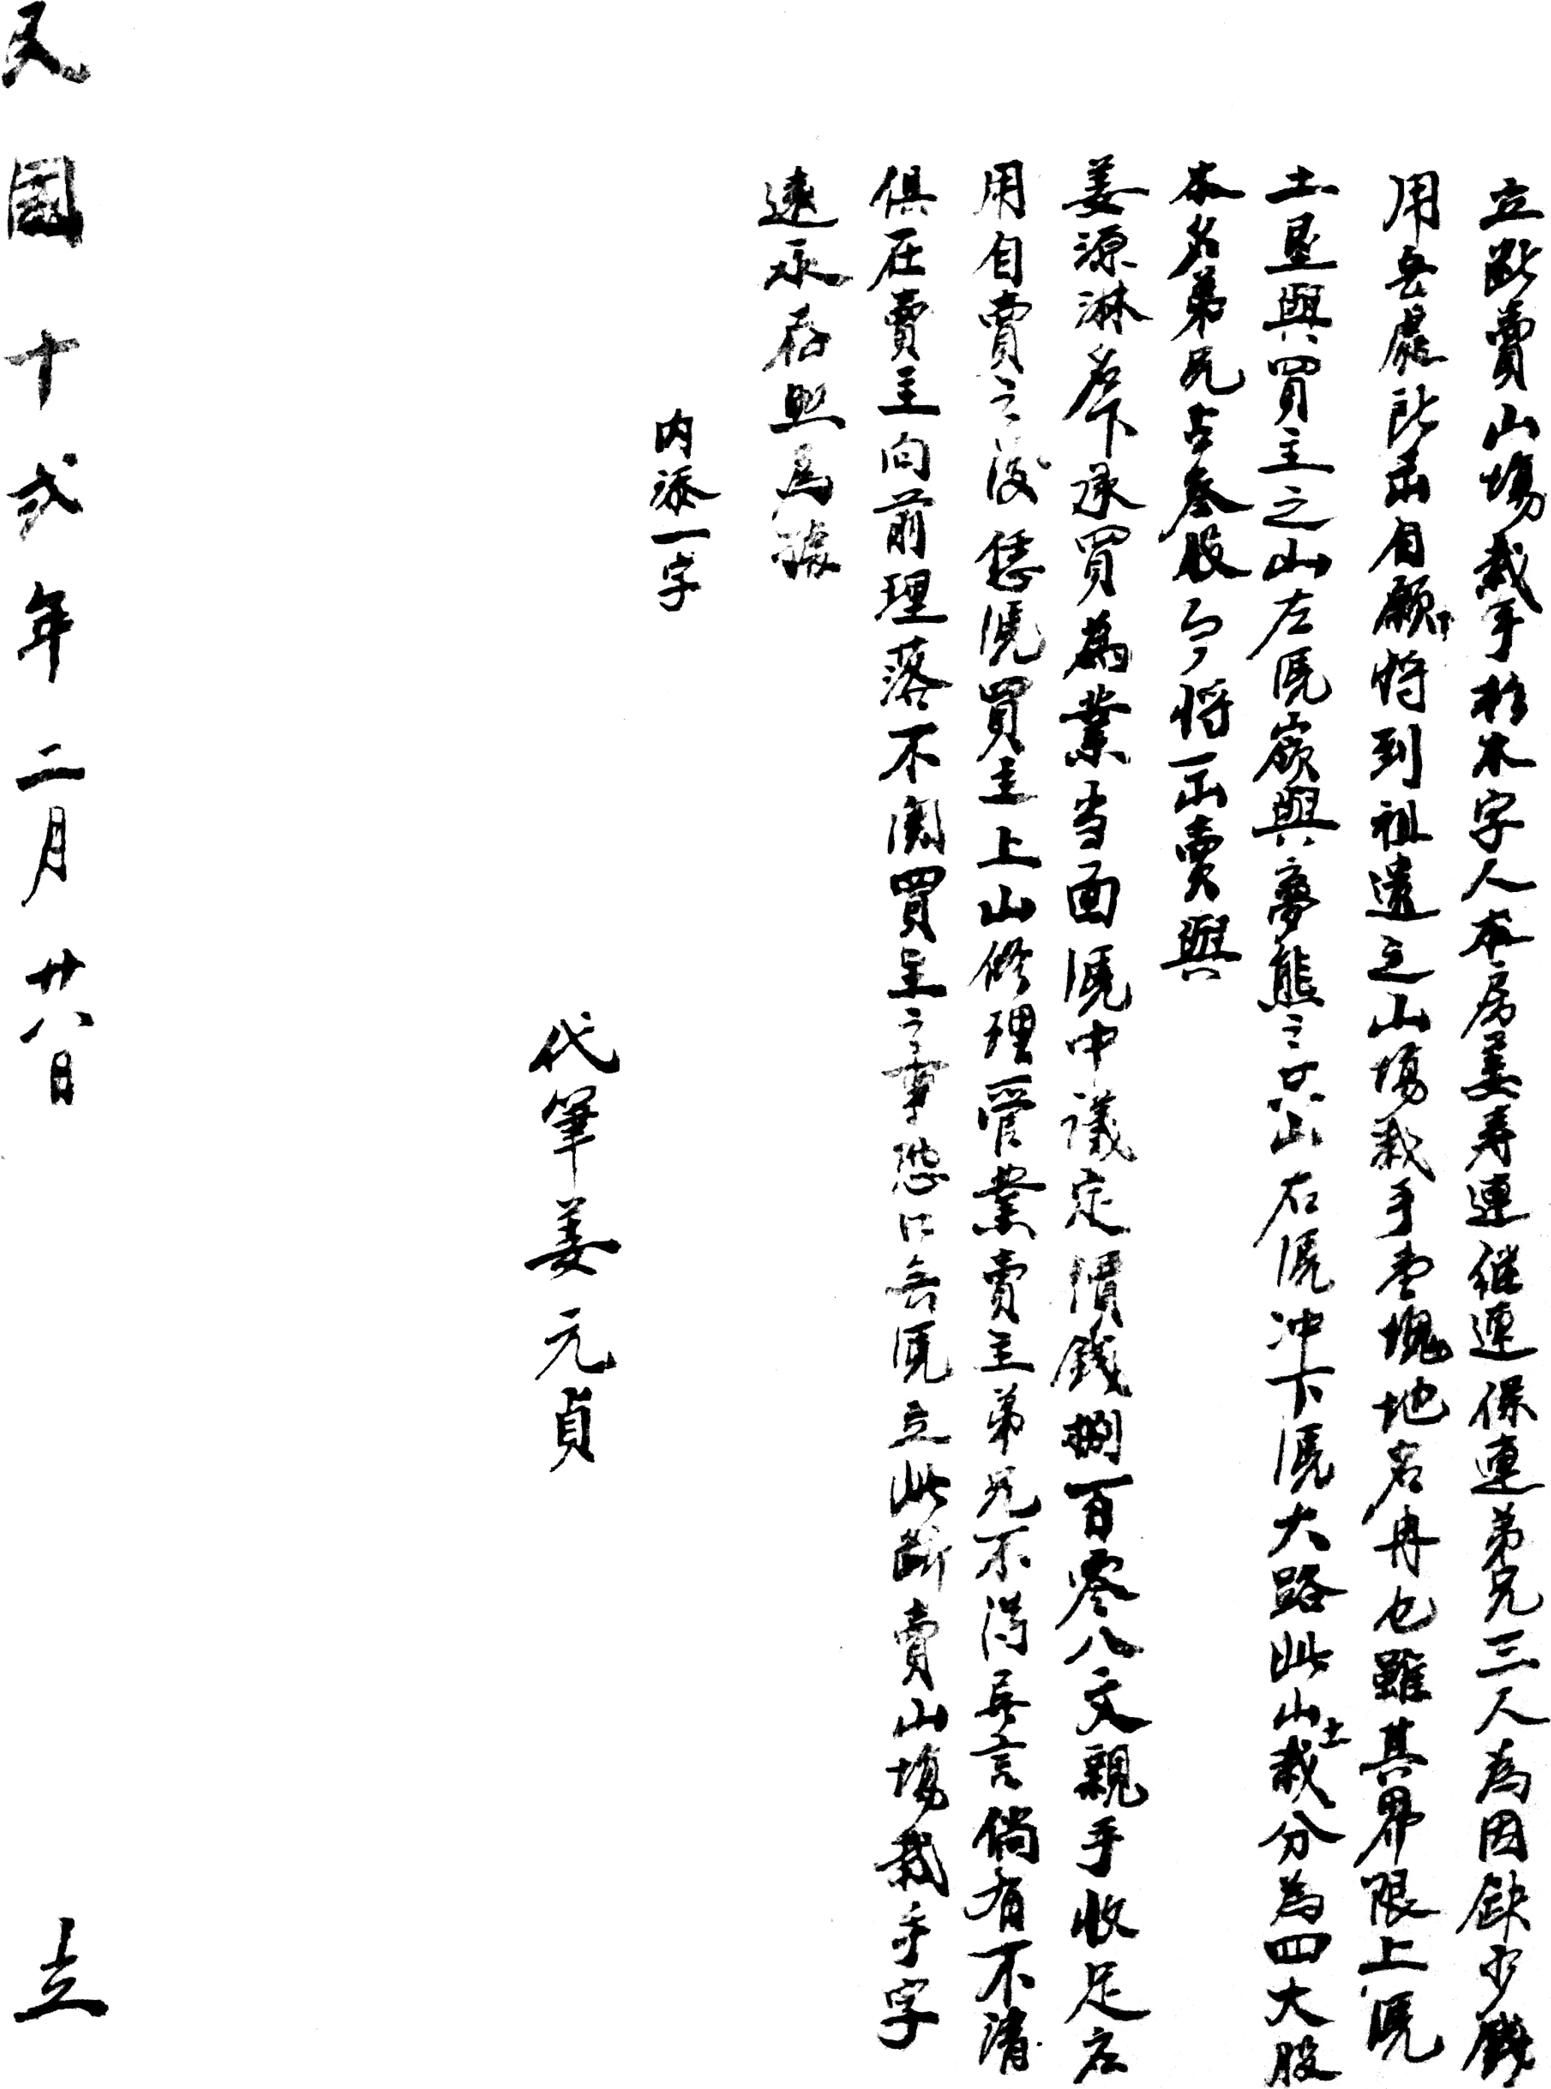 立斷賣山場栽手杉木字人本房姜寿連継連保連弟兄三人為因缺少錢
用無處所出自願将到祖遺之山場栽手壹塊地名冉乜雖其界限上凴
土垦與買主之山左凴嶺與夢熊之共山右凴冲下凴大路此山土栽分為四大股
本名弟兄占叁股今将一出賣與
姜源淋名下承買為業当面凴中議定價錢捌百零八文親手收足応
用自賣之後恁凴買主上山修理管業賣主弟兄不得异言倘有不清
俱在賣主向前理落不関買主之事恐口無凴立此斷賣山場栽手字
遠承存照為據
内添一字
代筆姜元貞
民國十弍年二月廿八日 立